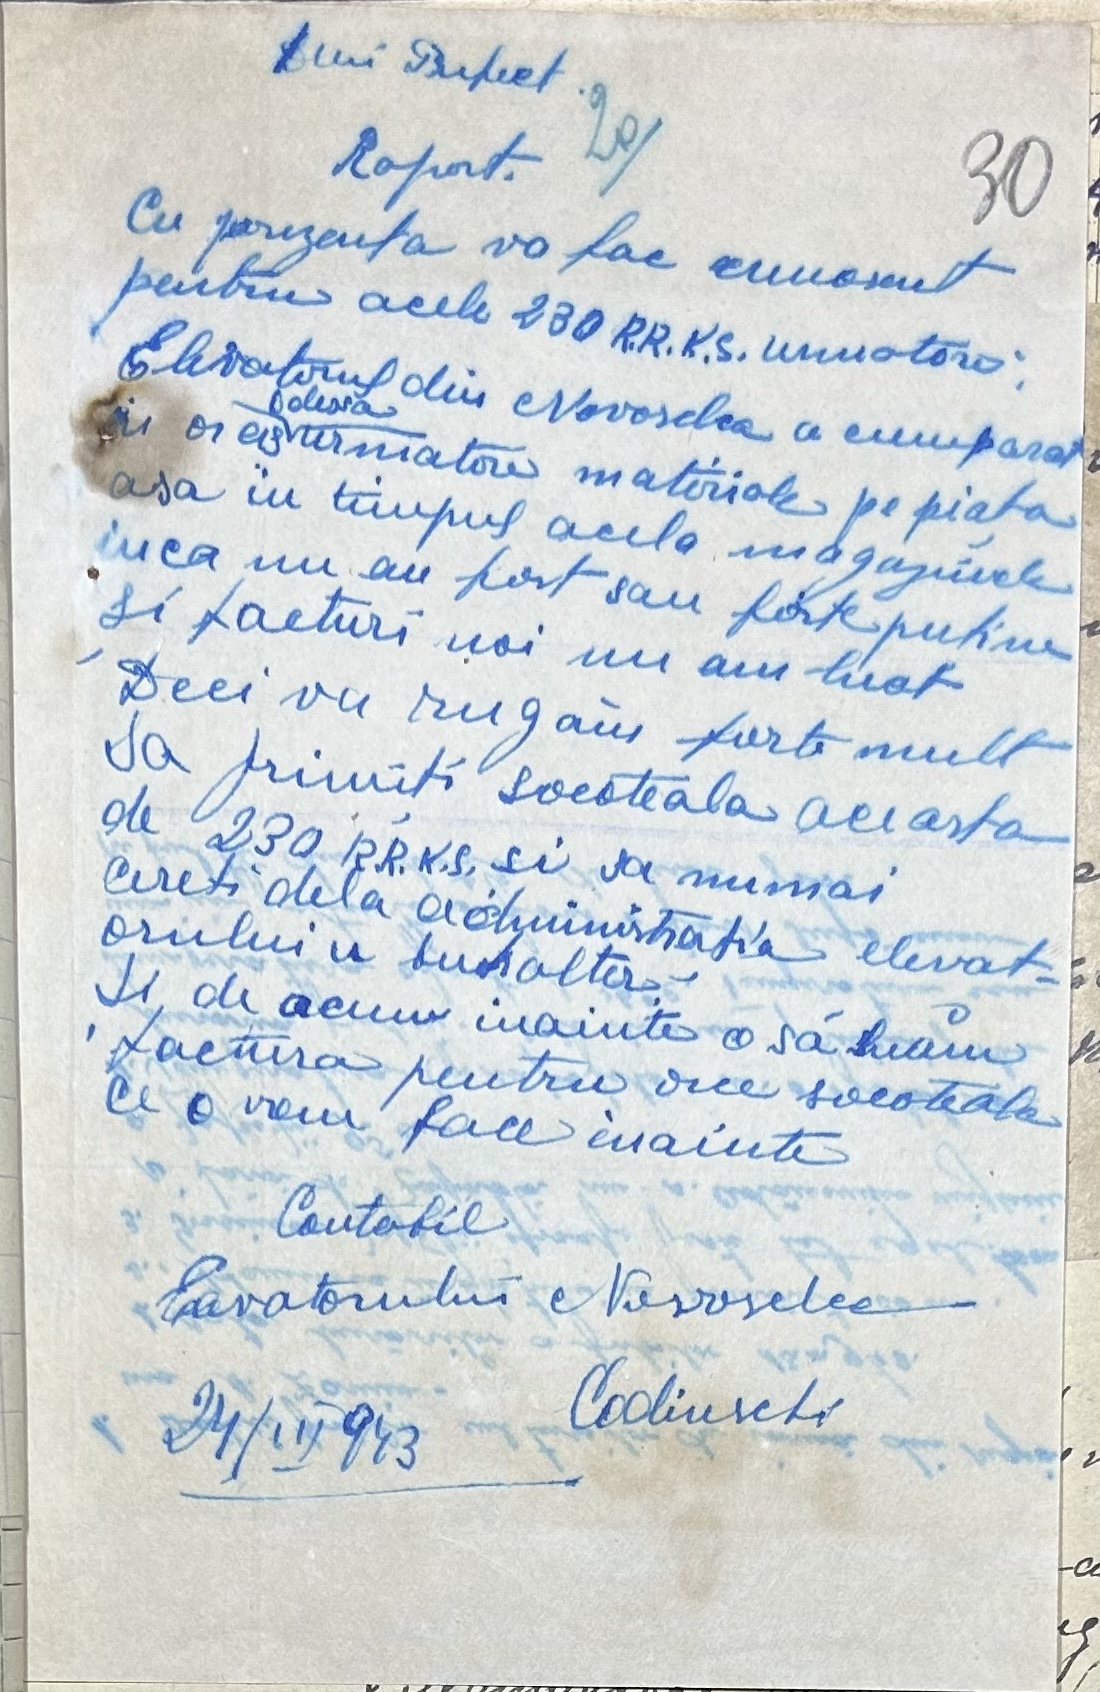 Dui Prefect.
29/
30
Raport.
Cu prezenta va fac cunoscut
pentru acele 230 R.R.K.S. urmatore;
Elevatorul din Novoselca a cumparat
in oraș Odessa urmatore materiale pe piața
asa in timpul acela magazinele
inca nu au fost sau forte putine
Si facturi noi nu am luat
Deci va rugăm forte mult
Sa primiti socoteala aceasta
de 230 R.R.K.S. si sa numai
cereti dela administrația elevat-
orului u buhalter.
Si de acum inainte o să luăm
factura pentru orce socoteale
ce o vom face inainte
Contabil
Elavatorului Novoselca
Codinschi
24/III 943